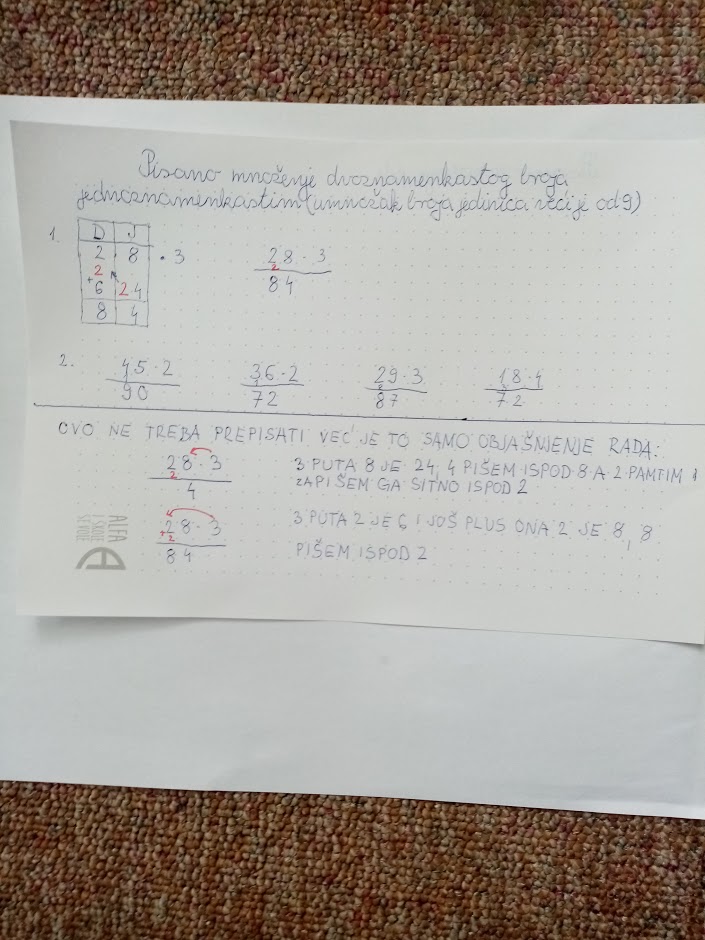 Pisano množenje dvoznamenkastog broja
jednoznamenkastim (umnožak broja jedinica veći je od 9)
1.
D J
2 8 · 3
2
+6 24
8 4
28 · 3
2
84
2.
45 · 2
1
90
36 · 2
1
72
29 · 3
2
87
18 · 4
3
72
OVO NE TREBA PREPISATI VEĆ JE TO SAMO OBJAŠNJENJE RADA:
28 · 3
2
4
3 PUTA 8 JE 24, 4 PIŠEM ISPOD 8 A 2 PAMTIM I
ZAPIŠEM GA SITNO ISPOD 2
28 · 3
+2
84
3 PUTA 2 JE 6 I JOŠ PLUS ONA 2 JE 8, 8
PIŠEM ISPOD 2
ALFA